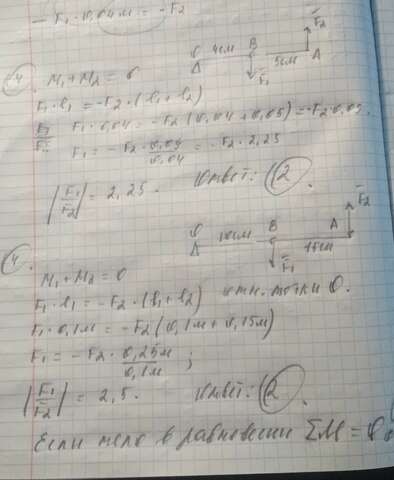 - F1 · 0,04м = -F2
F2
O 4см B
5см A
F1
4.
M1 + M2 = 0
F1 · l1 = -F2 · (l1 + l2)
F1 · 0,04 = -F2 (0,04 + 0,05) = -F2 · 0,09.
F1 = -F2 · 0,09/0,04 = -F2 · 2,25
|F1/F2| = 2,25. Ответ: 2.
F2
O 10см B A
15см
F1
4.
M1 + M2 = 0
F1 · l1 = -F2 · (l1 + l2) отн. точки O.
F1 · 0,1м = -F2 (0,1м + 0,15м)
F1 = -F2 · 0,25м/0,1м ;
|F1/F2| = 2,5. Ответ: 2.
Если тело в равновесии ΣM = 0